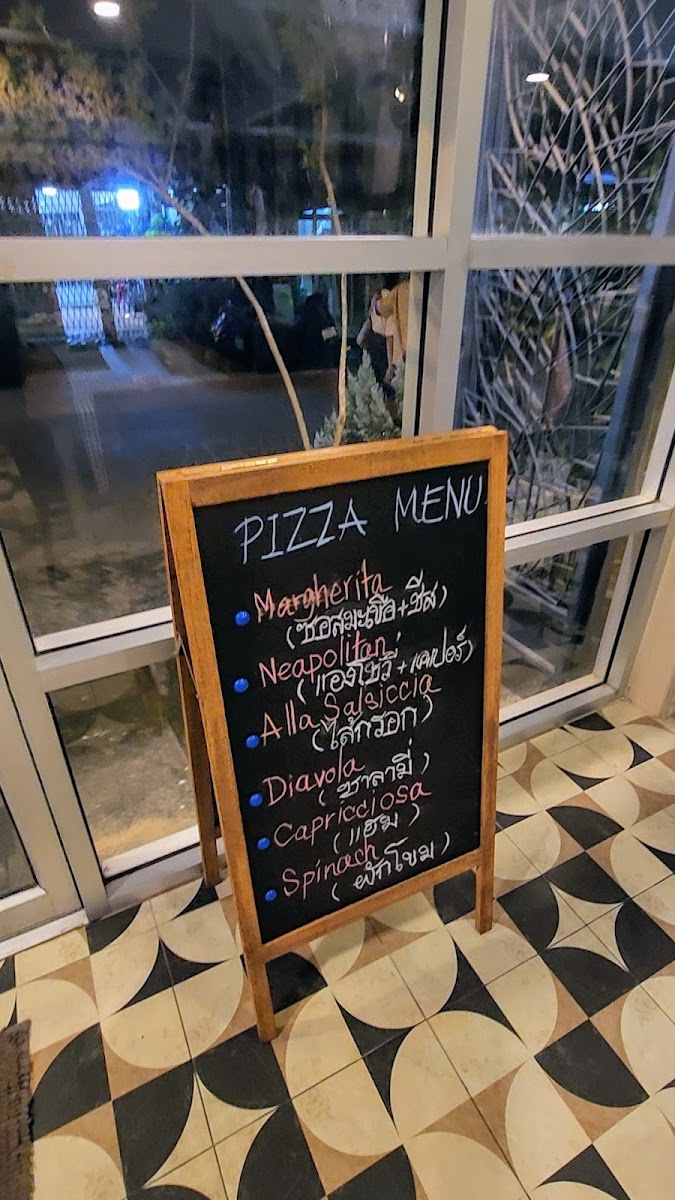 PIZZA MENU
Margherita
(ซอสมะเขือ+ชีส)
Neapolitan
(แองโชวี่+เคเปอร์)
Alla Salsiccia
(ไส้กรอก)
Diavola
(ซาลามี่)
Capricciosa
(แฮม)
Spinach
(ผักโขม)